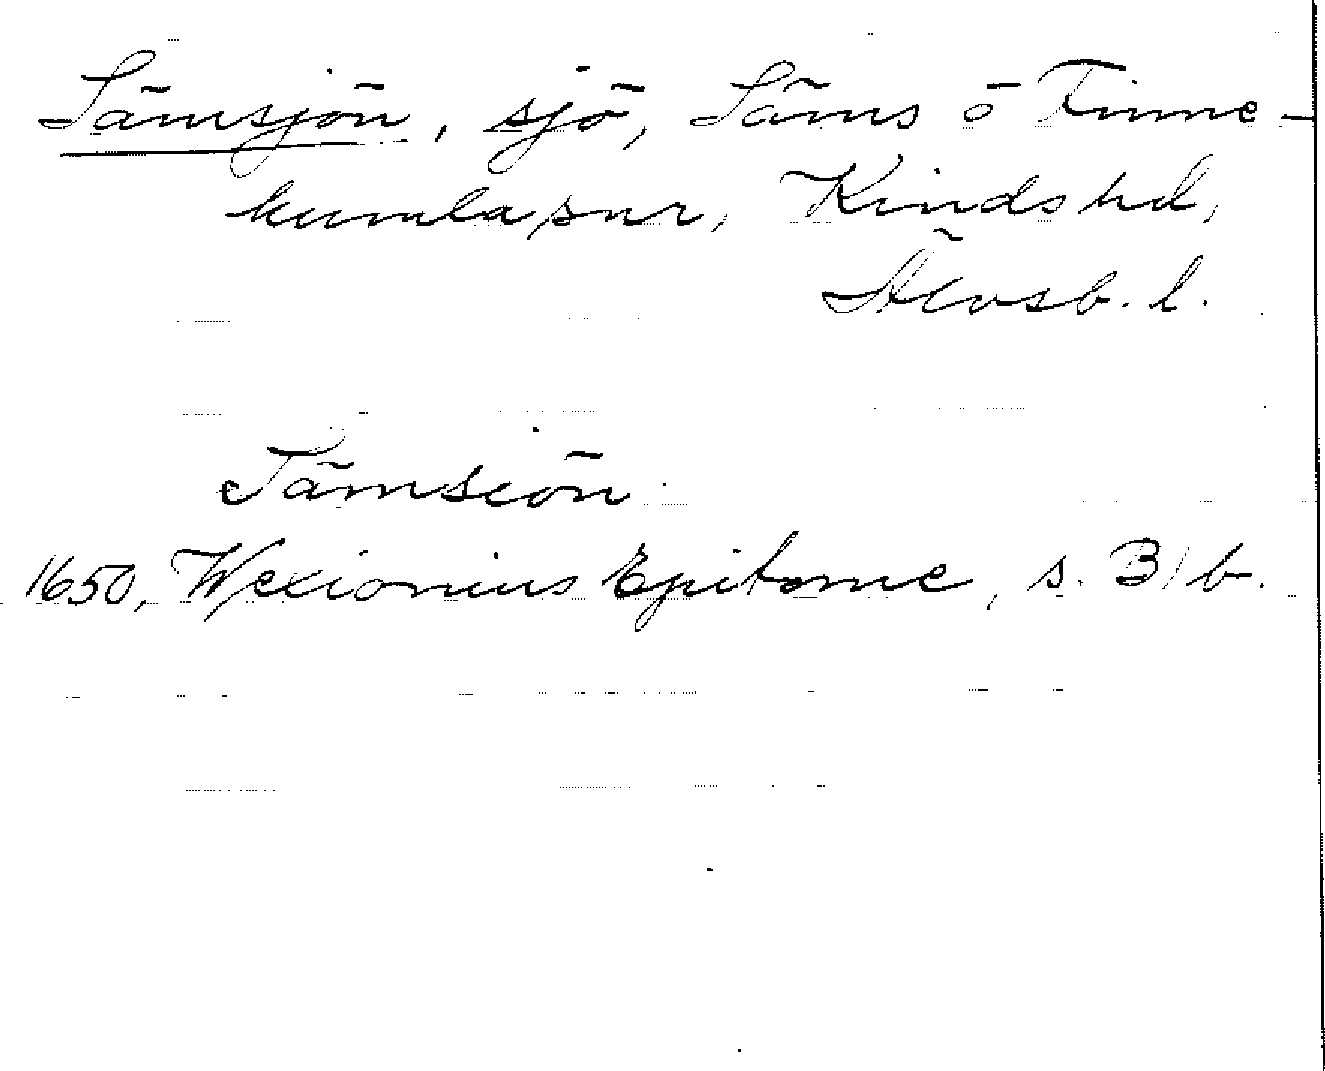 Sämsjön, sjö, Säms o Finne-
kumla snr, Kinds hd,
Älvsb. l.
Tämsiön
1650, Wexionius Epitome, s. B 1 b.